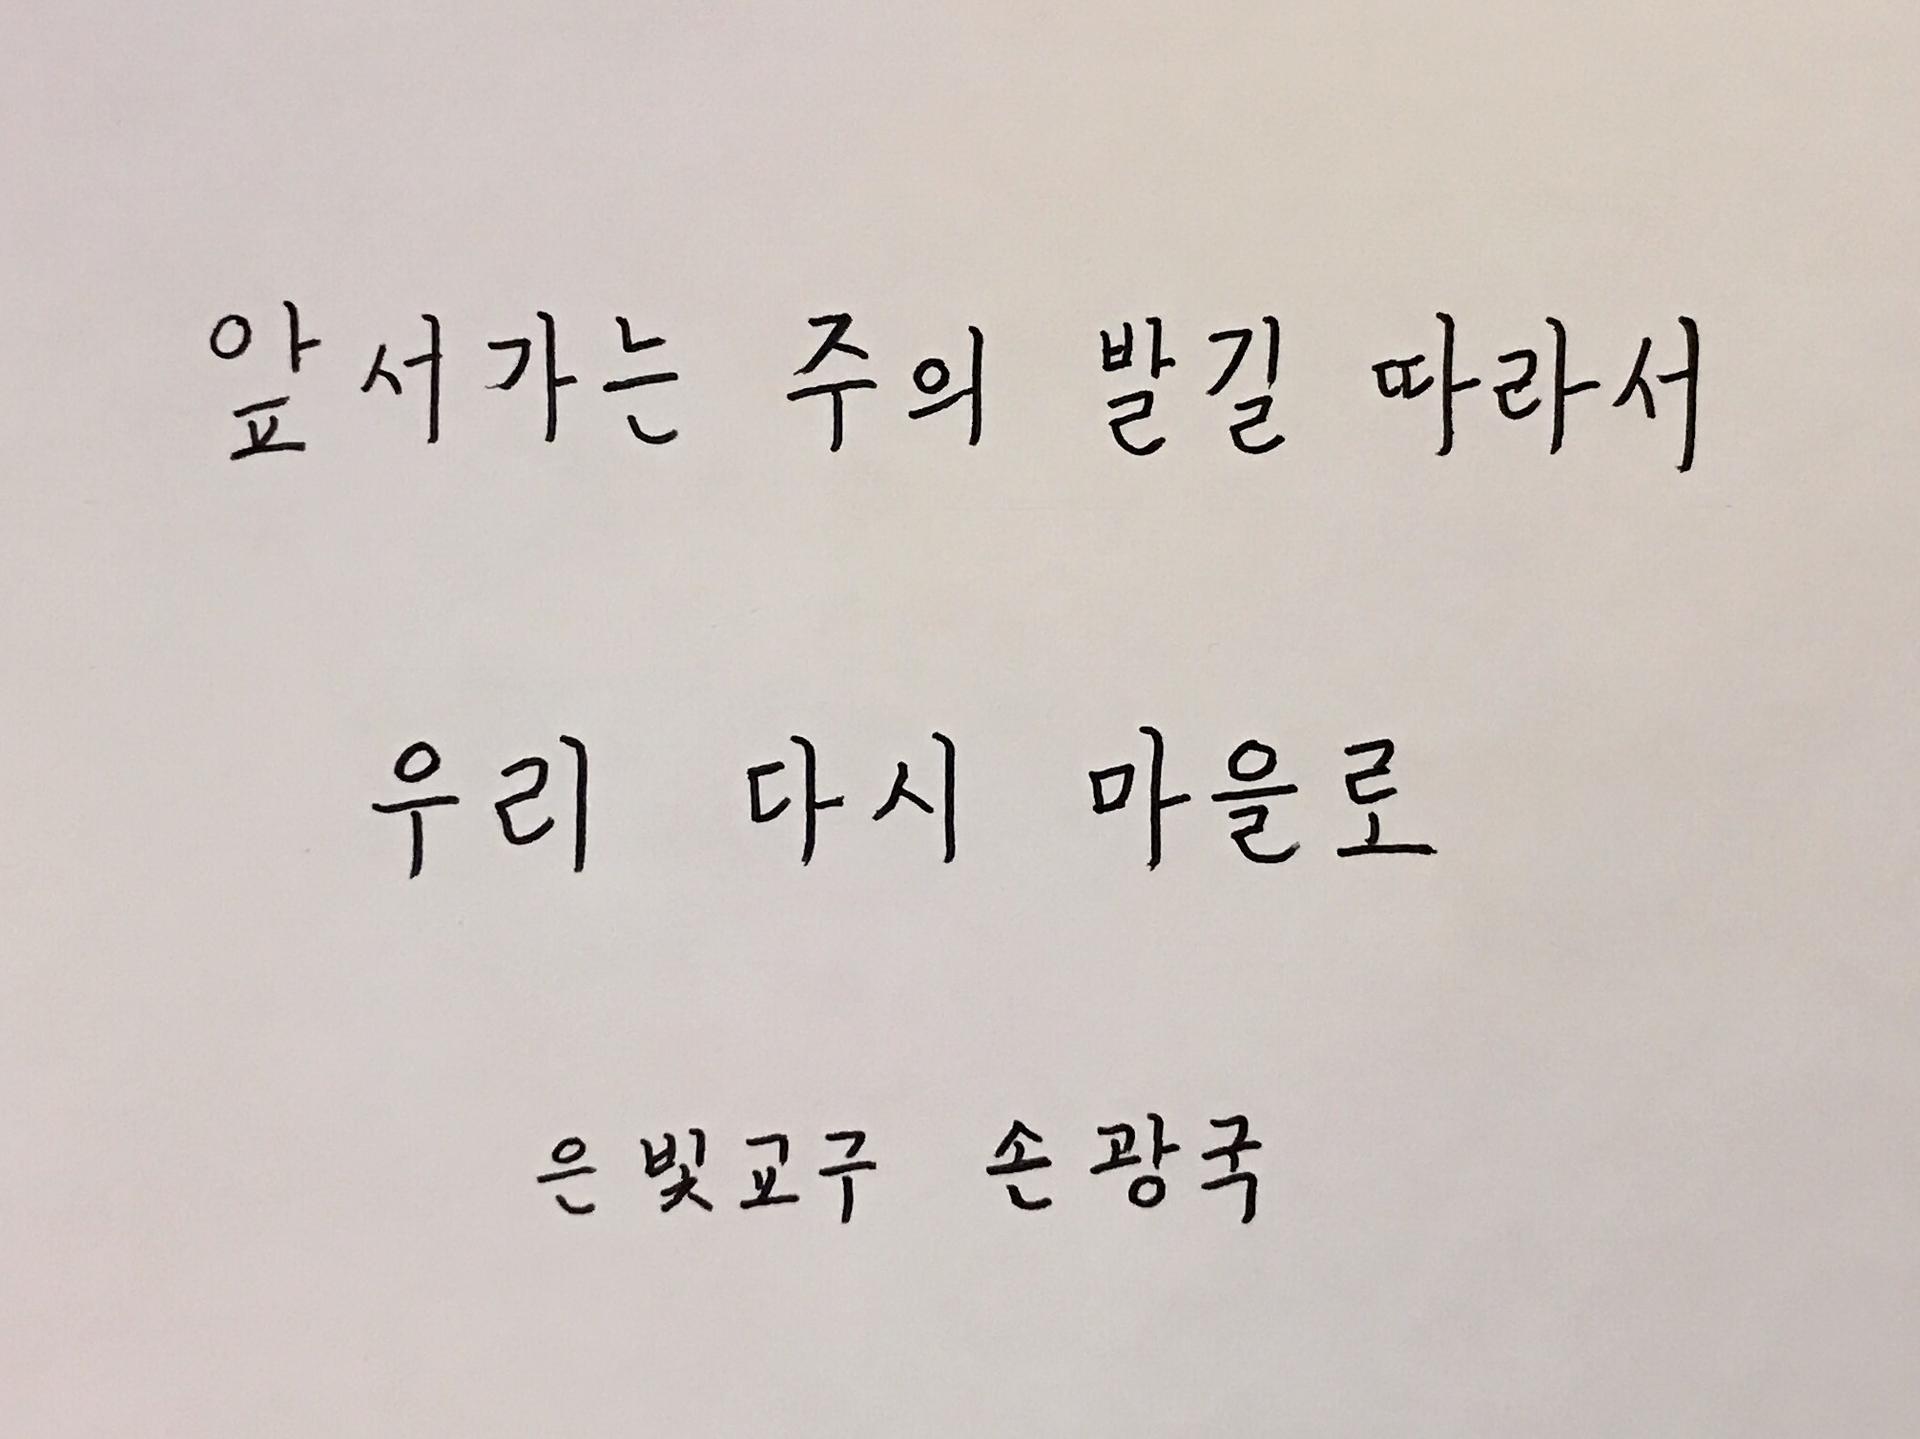 앞서가는 주의 발길 따라서
우리 다시 마을로
은빛교구 손광국